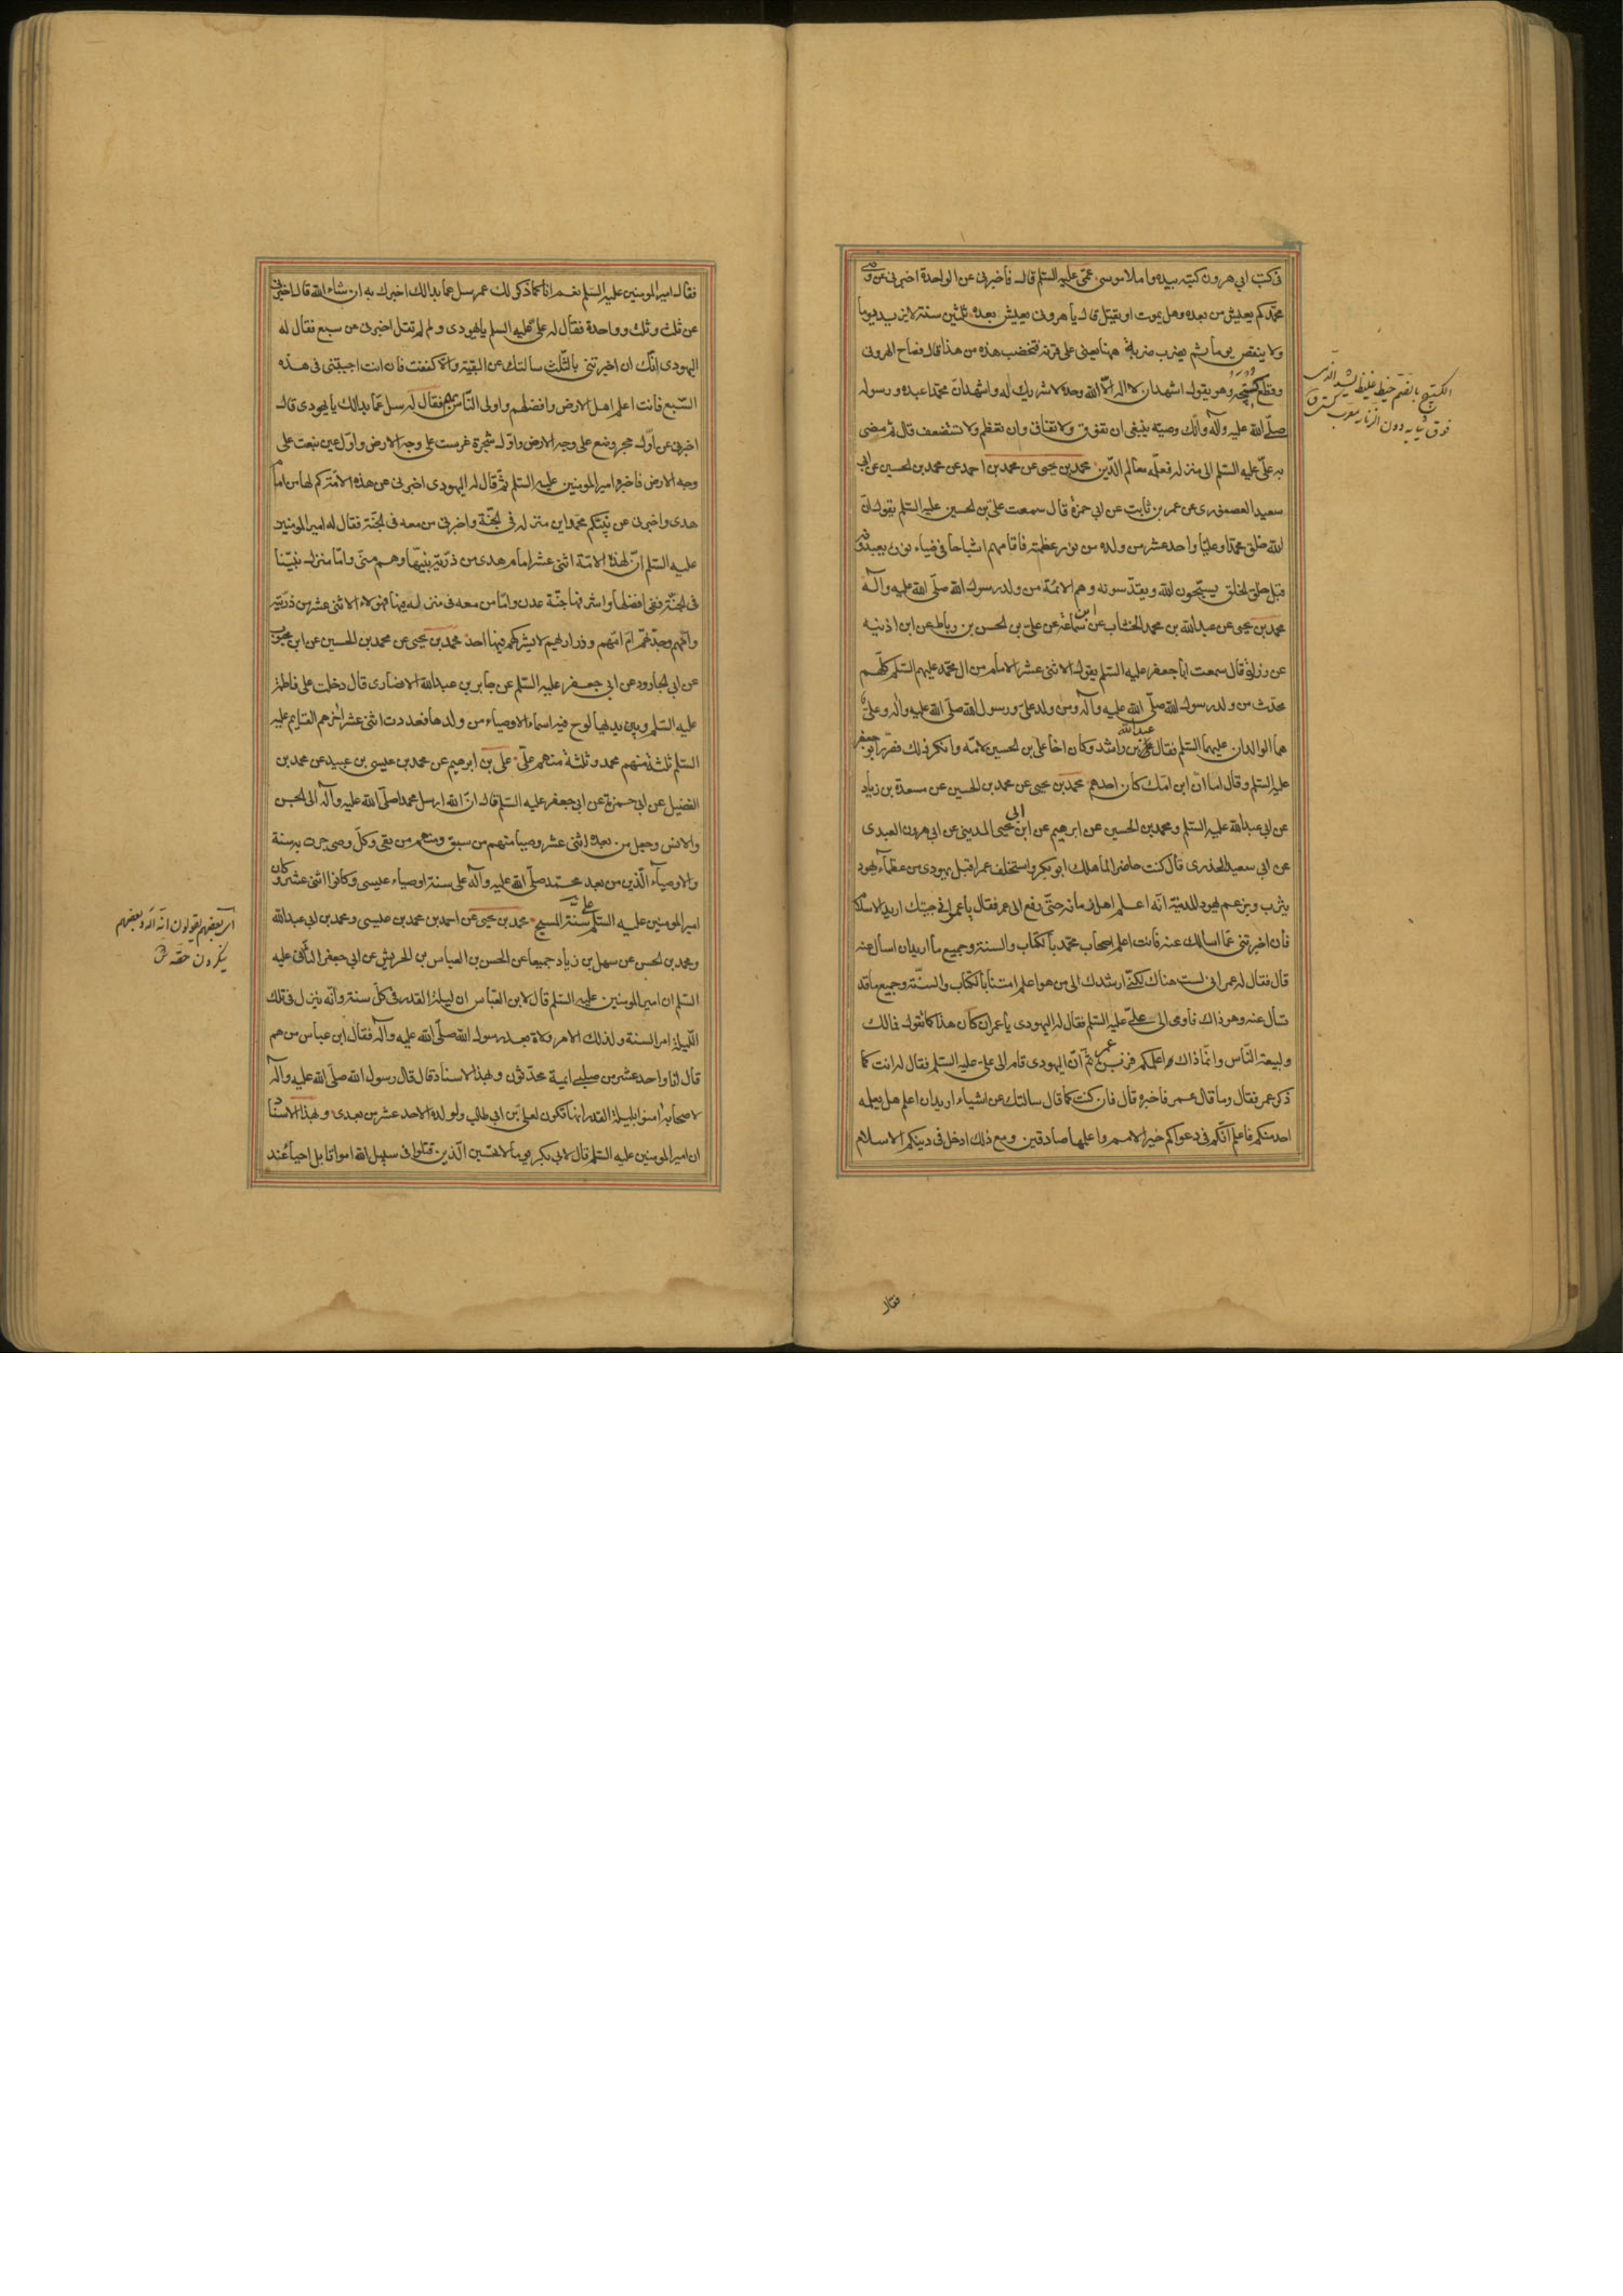 فى كتب ابي هرون كتبه بيده واملاه موسى عمّى عليه السّلم قال فأخبرنى عن الواحدة اخبرنى عن وصى
محمّدكم يعيش من بعده وهل يموت او يقتل قال يا هرونى يعيش بعده ثلثين سنة لا يزيد يوما
ولا ينقص يوما ثم يضرب ضربة ههنا يعنى على قرنه فتخضب هذه من هذا قال فصاح الهرونى
وقطع كستيجه وهو يقول اشهد ان لا اله الاّ الله وحده لا شريك له واشهد انّ محمّدا عبده ورسوله
صلّى الله عليه وآله وانّك وصيّه ينبغى ان تفوق ولا تفاق وان تعظم ولا تستضعف قال ثم مضى
به علىّ عليه السّلم الى منزله فعلّمه معالم الدّين محمد بن يحيى عن محمد بن احمد عن محمد بن الحسين عن ابى
سعيد العصفورى عن عمر بن ثابت عن ابى حمزة قال سمعت علىّ بن الحسين عليه السّلم يقول انّ
الله خلق محمّدا وعليّا واحد عشر من ولده من نور عظمته فاقامهم اشباحا فى ضياء نوره يعبدونه
قبل خلق الخلق يسبّحون الله ويقدّسونه وهم الائمّة من ولد رسول الله صلّى الله عليه وآله
محمد بن يحيى عن عبدالله بن محمد الخشاب عن ابن سماعة عن علىّ بن الحسن بن رباط عن ابن اذنيه
عن زرارة قال سمعت ابا جعفر عليه السّلم يقول الاثنى عشر الامام من ال محمّد عليهم السّلم كلّهم
محدّث من ولد رسول الله صلّى الله عليه وآله ومن ولد علىّ ورسول الله صلّى الله عليه وآله وعلىّ
هما الوالدان عليهما السّلم فقال عبدالله بن راشد وكان اخا على بن الحسين لامّه وانكر ذلك فصرّ ابو جعفر
عليه السّلم وقال اما انّ ابن امّك كان احدهم محمد بن يحيى عن محمد بن الحسين عن مسعدة بن زياد
عن ابى عبدالله عليه السّلم ومحمد بن الحسين عن ابرهيم عن ابن ابى يحيى المدينى عن ابى هرون العبدى
عن ابى سعيد الخدرى قال كنت حاضرا لمّا هلك ابو بكر واستخلف عمر اقبل يهودى من عظمآء يهود
يثرب وتزعم يهود المدينة انّه اعلم اهل زمانه حتّى رفع الى عمر فقال يا عمر انى جئتك اريد الاسلام
فان اخبرتنى عمّا اسالك عنه فانت اعلم اصحاب محمّد بالكتاب والسنة وجميع ما اريد ان اسال عنه
قال فقال له عمر انى لست هناك لكنّى ارشدك الى من هو اعلم امتنا بالكتاب والسنّة وجميع ما قد
تسأل عنه وهو ذاك فأومى الى علىّ عليه السّلم فقال له اليهودى يا عمر ان كان هذا كما تقول فمالك
ولبيعة النّاس وانّما ذاك اعلمكم فزبره عمر ثمّ انّ اليهودى قام الى على عليه السّلم فقال له انت كما
ذكر عمر فقال وما قال عمر فاخبره قال فان كنت كما قال سالتك عن اشياء اريد ان اعلم هل يعلمه
احد منكم فاعلم انّكم فى دعواكم خير الامم واعلمها صادقين ومع ذلك ادخل فى دينكم الاسلام
الكستيج بالضمّ خيط غليظ يشده الذمى
فوق ثيابه دون الزنار معرب كستى
فقال
فقال امير المومنين عليه السّلم نعم انا كما ذكر لك عمر سل عمّا بدالك اخبرك به ان شاء الله قال اخبرنى
عن ثلث وثلث وواحدة فقال له علىّ عليه السلم يا يهودى ولم لم تقل اخبرنى عن سبع فقال له
اليهودى انّك ان اخبرتنى بالثّلث سالتك عن البقيّة والاّ كففت فان انت اجبتنى فى هذه
السّبع فانت اعلم اهل الارض وافضلهم واولى النّاس بهم فقال له سل عمّا بدالك يا يهودى قال
اخبرنى عن اوّل حجر وضع على وجه الارض واوّل شجرة غرست على وجه الارض واوّل عين نبعت على
وجه الارض فاخبره امير المومنين عليه السّلم ثمّ قال له اليهودى اخبرنى عن هذه الامّة كم لها من امام
هدى واخبرنى عن نبيّكم محمّد اين منزله فى الجنّة واخبرنى من معه فى الجنّة فقال له امير المومنين
عليه السّلم انّ لهذه الامّة اثنى عشر امام هدى من ذرّيّة نبيّها وهم منّى وامّا منزل نبيّنا
فى الجنّة ففى افضلها واشرفها جنّة عدن وامّا من معه فى منزله فيها فهؤلاء الاثنى عشر من ذرّيّته
وامّهم وجدّتهم امّ امّهم وذراريهم لا يشركهم فيها احد محمد بن يحيى عن محمد بن الحسين عن ابن محبوب
عن ابى الجارود عن ابى جعفر عليه السّلم عن جابر بن عبدالله الانصارى قال دخلت على فاطمة
عليه السّلم وبين يديها لوح فيه اسماء الاوصياء من ولدها فعددت اثنى عشر اخرهم القايم عليه
السّلم ثلثة منهم محمد وثلثة منهم علىّ على بن ابرهيم عن محمد بن عيسى بن عبيد عن محمد بن
الفضيل عن ابى حمزة عن ابى جعفر عليه السّلم قال انّ الله ارسل محمدا صلّى الله عليه وآله الى الجن
والانس وجعل من بعده اثنى عشر وصيا منهم من سبق ومنهم من بقى وكلّ وصى جرت به سنة
والاوصيآء الّذين من بعد محمّد صلّى الله عليه وآله على سنة اوصياء عيسى وكانوا اثنى عشر وكان
امير المومنين عليه السّلم على سنّة المسيح محمد بن يحيى عن احمد بن محمد بن عيسى ومحمد بن ابى عبدالله
ومحمد بن الحسن عن سهل بن زياد جميعا عن الحسن بن العباس بن الحريش عن ابى جعفر الثانى عليه
السّلم ان امير المومنين عليه السّلم قال لابن العبّاس ان ليلة القدر فى كلّ سنة وانّه ينزل فى تلك
اللّيلة امر السنة ولذلك الامر ولاة بعد رسول الله صلّى الله عليه وآله فقال ابن عباس من هم
قال انا واحد عشر من صلبى ائمة محدّثون وبهذا الاسناد قال قال رسول الله صلّى الله عليه وآله
لاصحابه امنوا بليلة القدر انها تكون لعلىّ بن ابى طالب ولولده الاحد عشر من بعدى وبهذا الاسناد
ان امير المومنين عليه السّلم قال لابى بكر يوما لا تحسبن الّذين قتلوا فى سبيل الله امواتا بل احياء عند
اى بعضهم يقولون انّه اله وبعضهم
ينكرون حقّه